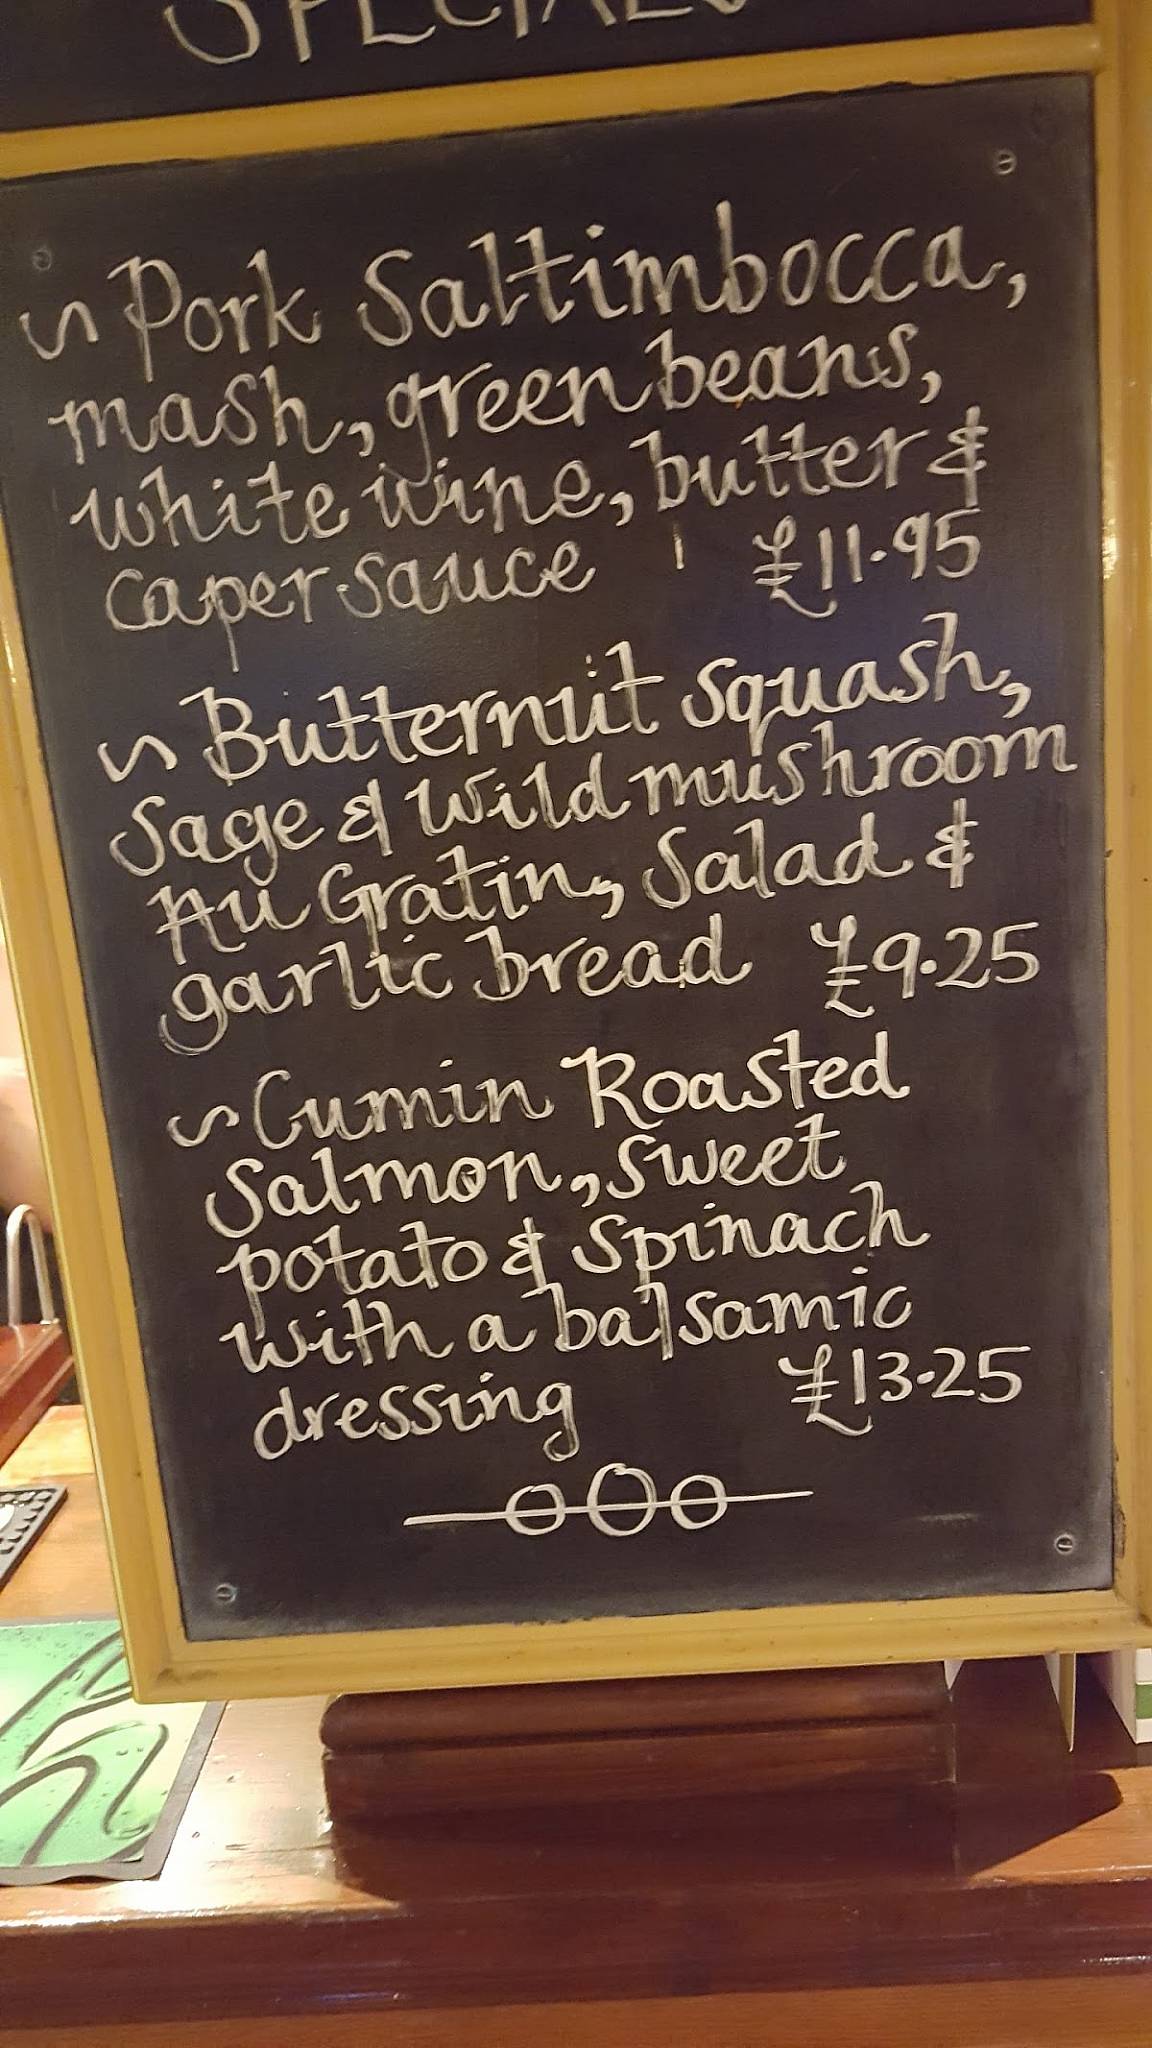 SPECIALS
~ Pork Saltimbocca,
mash, green beans,
white wine, butter &
caper sauce £11.95
~ Butternut Squash,
Sage & Wild mushroom
Au Gratin, Salad &
garlic bread £9.25
~ Cumin Roasted
Salmon, Sweet
potato & Spinach
with a balsamic
dressing £13.25